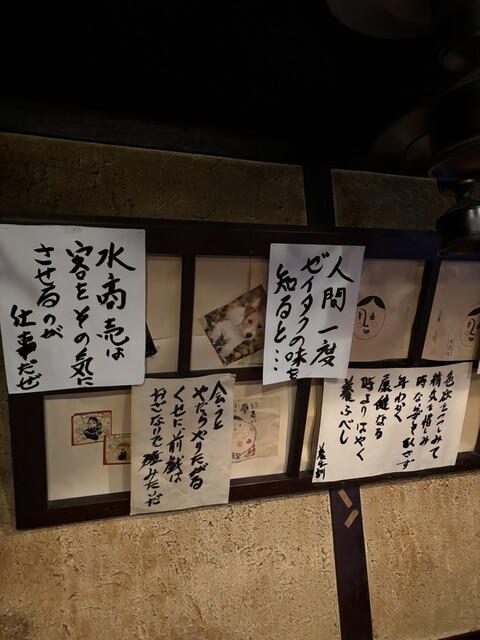 水商売は
客をその気に
させるのが
仕事だぜ
人間一度
ゼイタクの味を
知ると…
会うと
やたらやりたがる
くせに前戯は
おざなりで
色欲をつつしみて
精気を惜み
時な
年わかく
康健なる
時よりはやく
養ふべし
養生訓